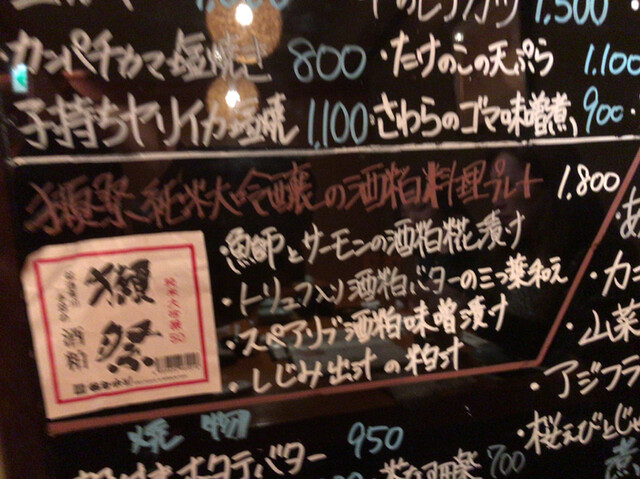 1,500
・カンパチカマ塩焼き 800
・たけのこの天ぷら 1,100
子持ちヤリイカ塩焼 1,100
・さわらのゴマ味噌煮 900
獺祭 純米大吟醸の酒粕料理プレート 1,800
・漁師とサーモンの酒粕糀漬け
・トリュフ入り酒粕バターの三つ葉和え
・スペアリブ酒粕味噌漬け
・しじみ出汁の粕汁
獺祭
純米大吟醸50
酒粕
・カ
・山菜
・アジフラ
・桜えびとじゃ
焼物
ホタテバター 950
700